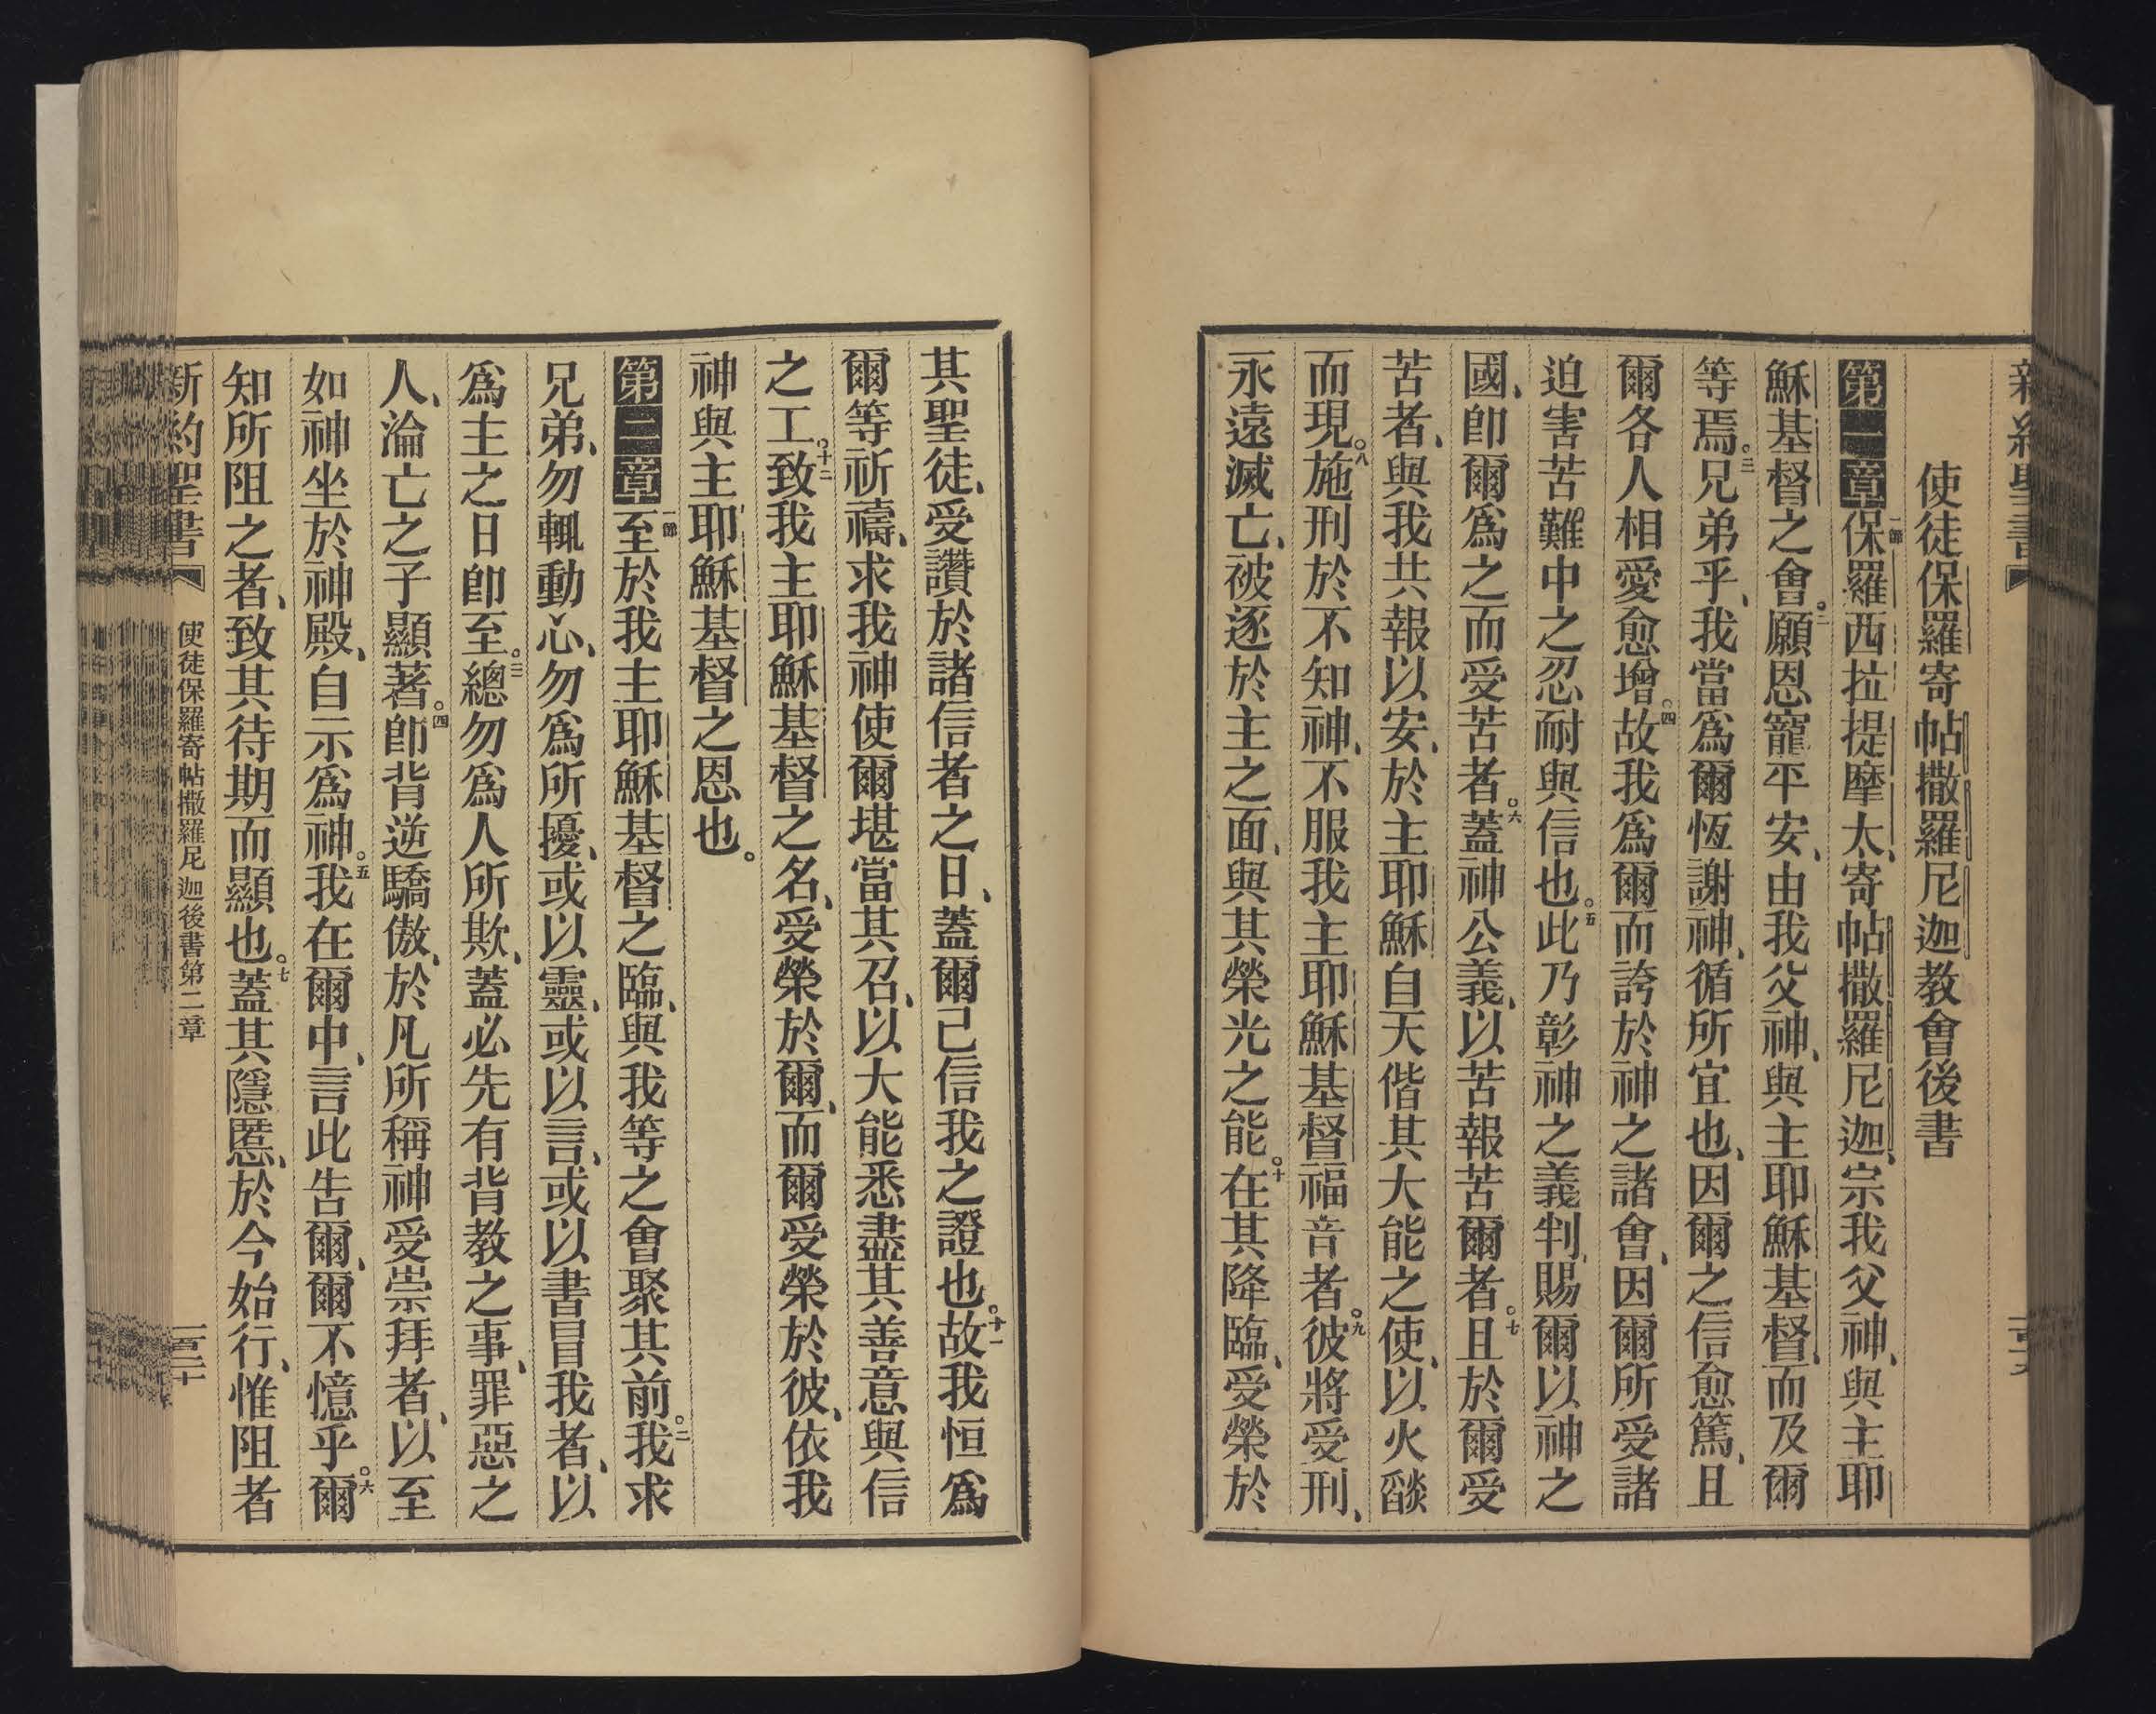 新約聖書
使徒保羅寄帖撒羅尼迦教會後書
第一章一節保羅西拉提摩太、寄帖撒羅尼迦、宗我父神、與主耶
穌基督之會。二願恩寵平安、由我父神、與主耶穌基督、而及爾
等焉。三兄弟乎、我當爲爾恆謝神、循所宜也、因爾之信愈篤、且
爾各人相愛愈增。四故我爲爾而誇於神之諸會、因爾所受諸
迫害苦難中之忍耐與信也。五此乃彰神之義判、賜爾以神之
國、卽爾爲之而受苦者。六蓋神公義、以苦報苦爾者。七且於爾受
苦者、與我共報以安、於主耶穌自天偕其大能之使、以火燄
而現。八施刑於不知神、不服我主耶穌基督福音者。九彼將受刑、
永遠滅亡、被逐於主之面、與其榮光之能。十在其降臨、受榮於
其聖徒、受讚於諸信者之日、蓋爾己信我之證也。十一故我恒爲
爾等祈禱、求我神使爾堪當其召、以大能悉盡其善意與信
之工。十二致我主耶穌基督之名、受榮於爾、而爾受榮於彼、依我
神與主耶穌基督之恩也。
第二章一節至於我主耶穌基督之臨、與我等之會聚其前。二我求
兄弟、勿輒動心、勿爲所擾、或以靈、或以言、或以書冒我者、以
爲主之日卽至。三總勿爲人所欺、蓋必先有背教之事、罪惡之
人、淪亡之子顯著。四卽背逆驕傲、於凡所稱神受崇拜者、以至
如神坐於神殿、自示爲神。五我在爾中、言此告爾、爾不憶乎。六爾
知所阻之者、致其待期而顯也。七蓋其隱慝、於今始行、惟阻者
新約聖書 使徒保羅寄帖撒羅尼迦後書第二章 一百二十